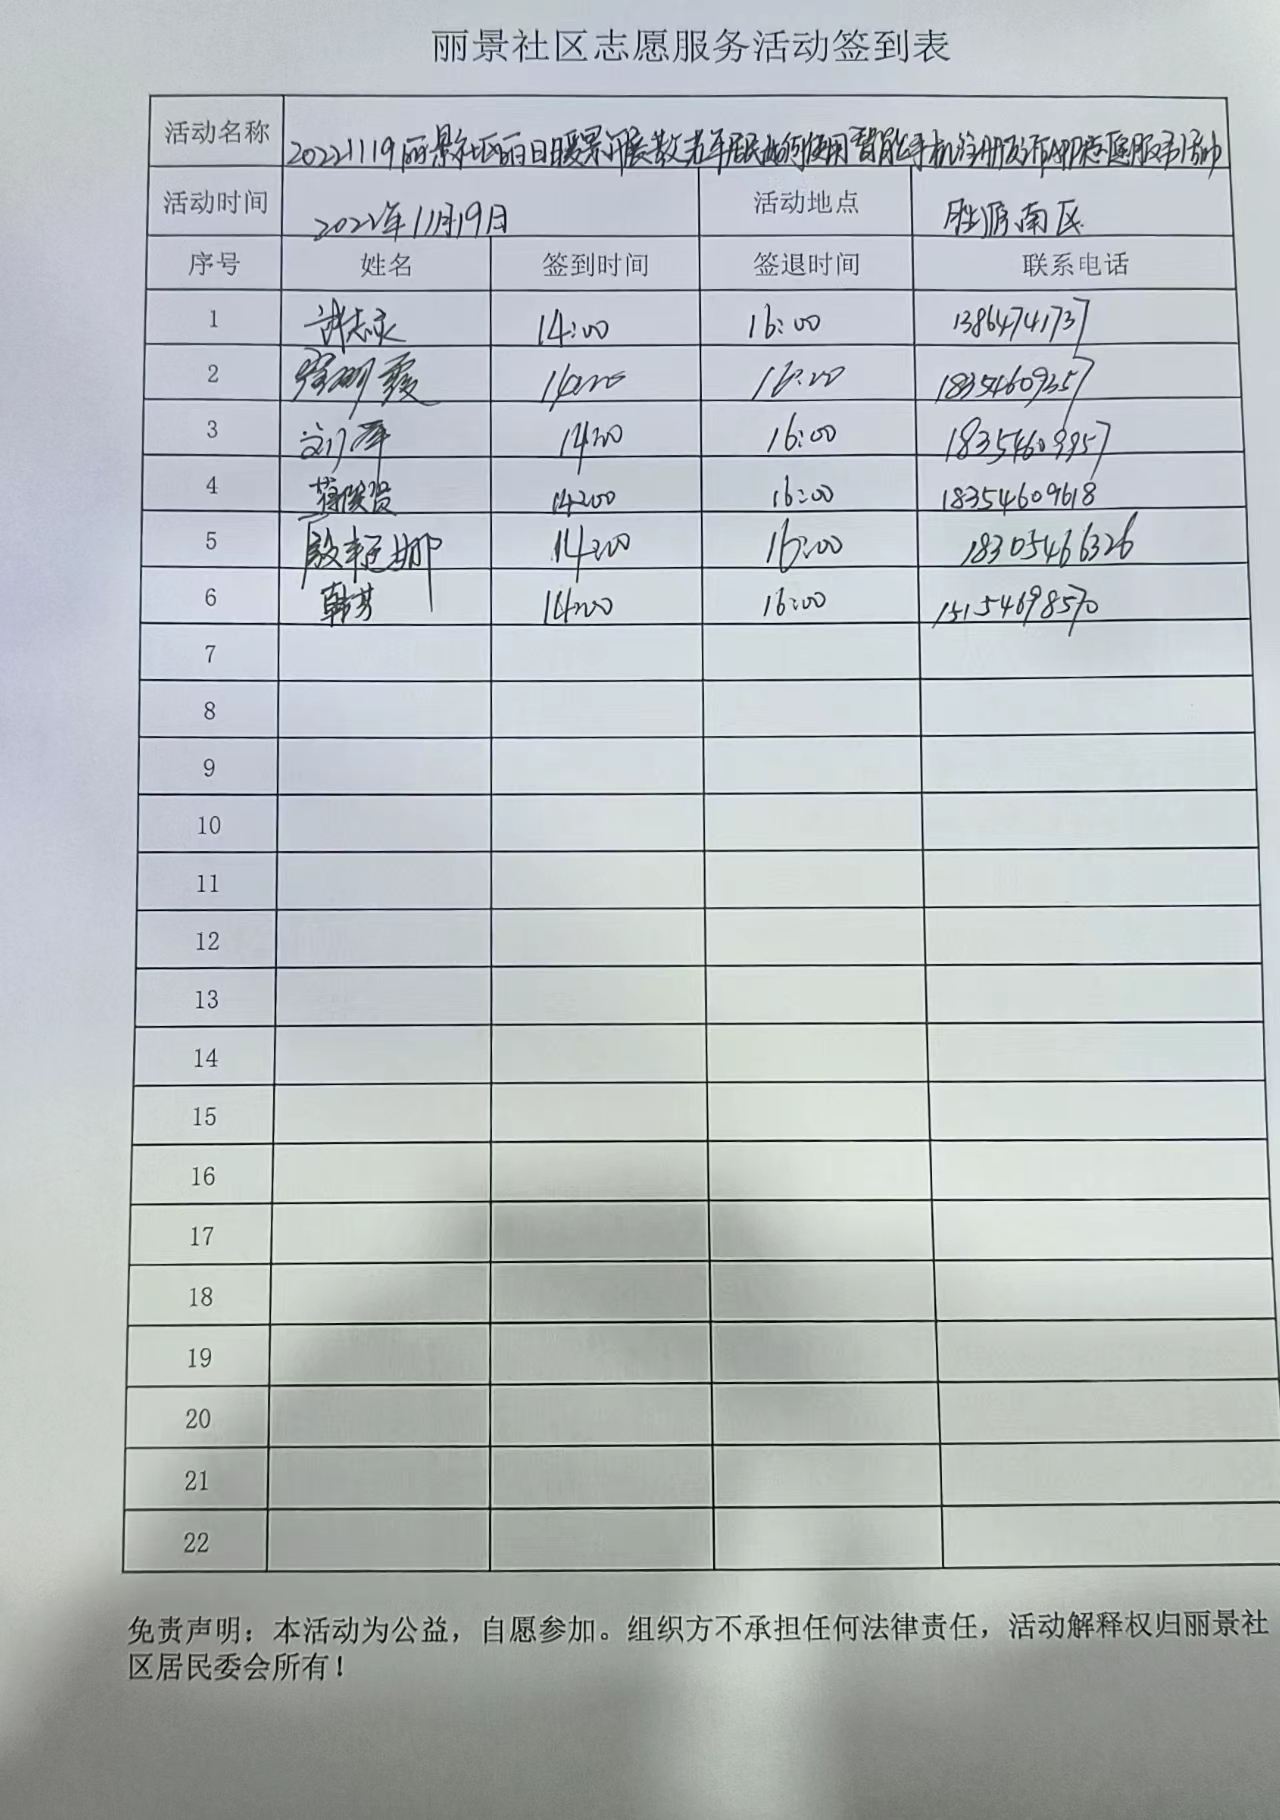 丽景社区志愿服务活动签到表
活动名称 20221119丽景社区丽日暖景开展教老年居民如何使用智能手机注册发布APP志愿服务活动
活动时间 2022年11月19日 活动地点 胜源南区
序号 姓名 签到时间 签退时间 联系电话
1 14:00 16:00 13864741737
2 16:00
3 14:00 16:00
4 14:00 16:00 18354609618
5 14:00 16:00 18305466326
6 韩芳 14:00 16:00 15154698570
7
8
9
10
11
12
13
14
15
16
17
18
19
20
21
22
免责声明：本活动为公益，自愿参加。组织方不承担任何法律责任，活动解释权归丽景社
区居民委会所有！